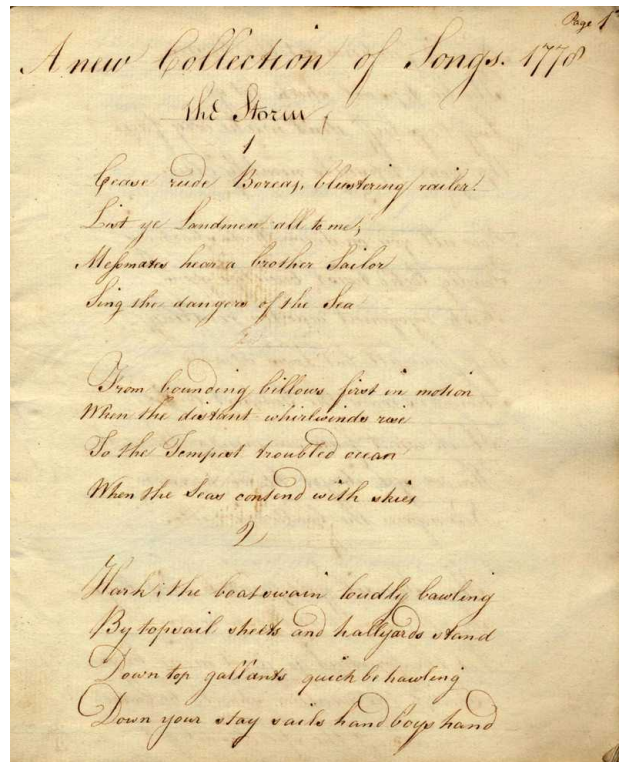 Page 1
A new Collection of Songs. 1778
the Storm,
1
Cease rude Boreas, blustering railer!
List ye Landmen all to me,
Messmates hear a brother Sailor
Sing the dangers of the Sea
From bounding billows first in motion
When the distant whirlwinds rise
To the Tempest troubled ocean
When the Seas contend with skies
2
Hark; the boatswain loudly bawling
By topsail sheets and hallyards stand
Down top gallants quick be hawling
Down your stay sails hand boys hand